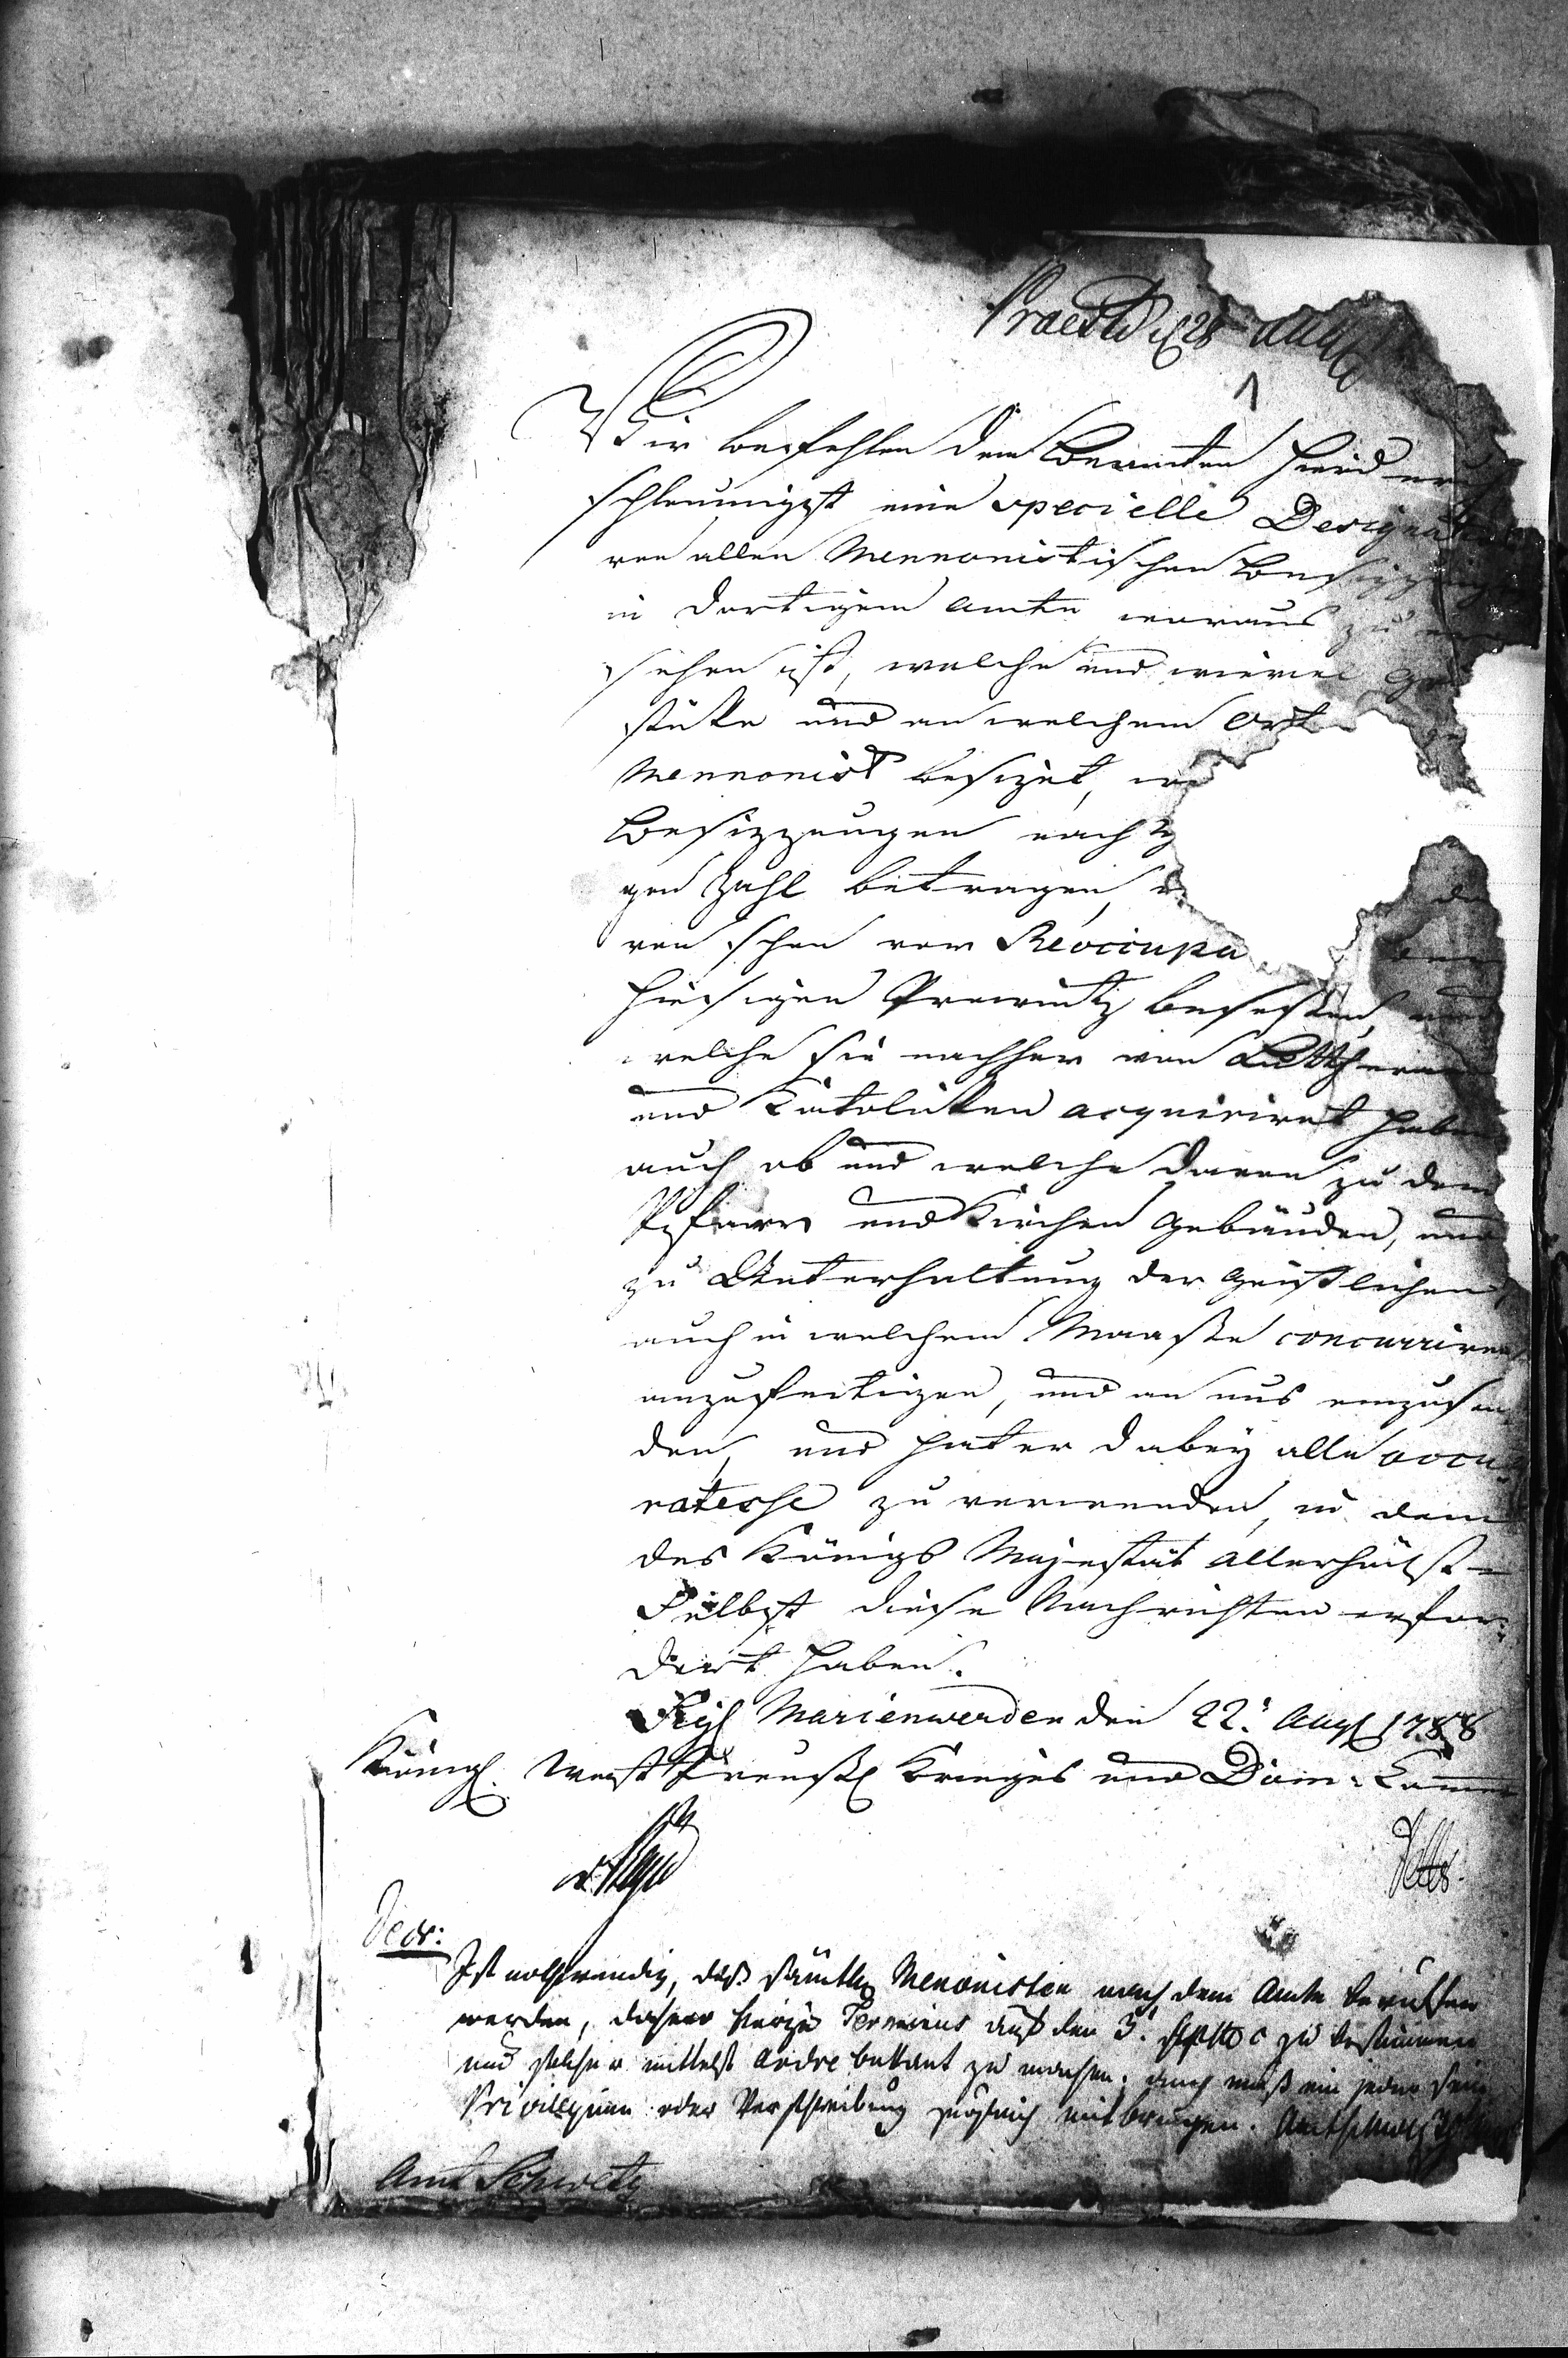 Praes. d 28 Aug
1
Wir befehlen dem Beamten hierdurch
schleunigst eine specielle Designation
von allen Mennonistischen Besizzungen
in dortigem Amte woraus zu er
sehen ist, welche und wieviel
stükke und an welchem Ort
Mennonist besizet,
Besizzungen nach
gen Zahl betragen,
von schon vor Reoccupa
hiesigen Provintz besessen, und
welche sie nachher von Luthera
und Katolikken acquiriret haben
auch ob und welche davon zu den
Pfarr und Kirchen Gebäuden, und
zu Unterhaltung der Geistlichen,
auch in welchem Maaße concurriren
anzufertigen, und an uns einzusen
den, und hat er dabey alle accu
ratesse zu verwenden, in dem
des Königs Majestät Allerhöchst-
Selbst diese Nachrichten erfor-
dert haben.
Sigl Marienwerder den 22. Aug 1788
Königl. West Preußl Krieges und Dom: Camer
Decr:
Ist nothwendig, daß sämtl Menonisten nach dem Amte beruffen
werden, daher hierzu Terminus auf den 3. Septbr c zu bestimmen
und solcher mittelst Ordre bekant zu machen, auch muß ein jeder sein
Privilegium oder Verschreibung zugleich mitbringen. Amt Schwetz
Amt Schwetz